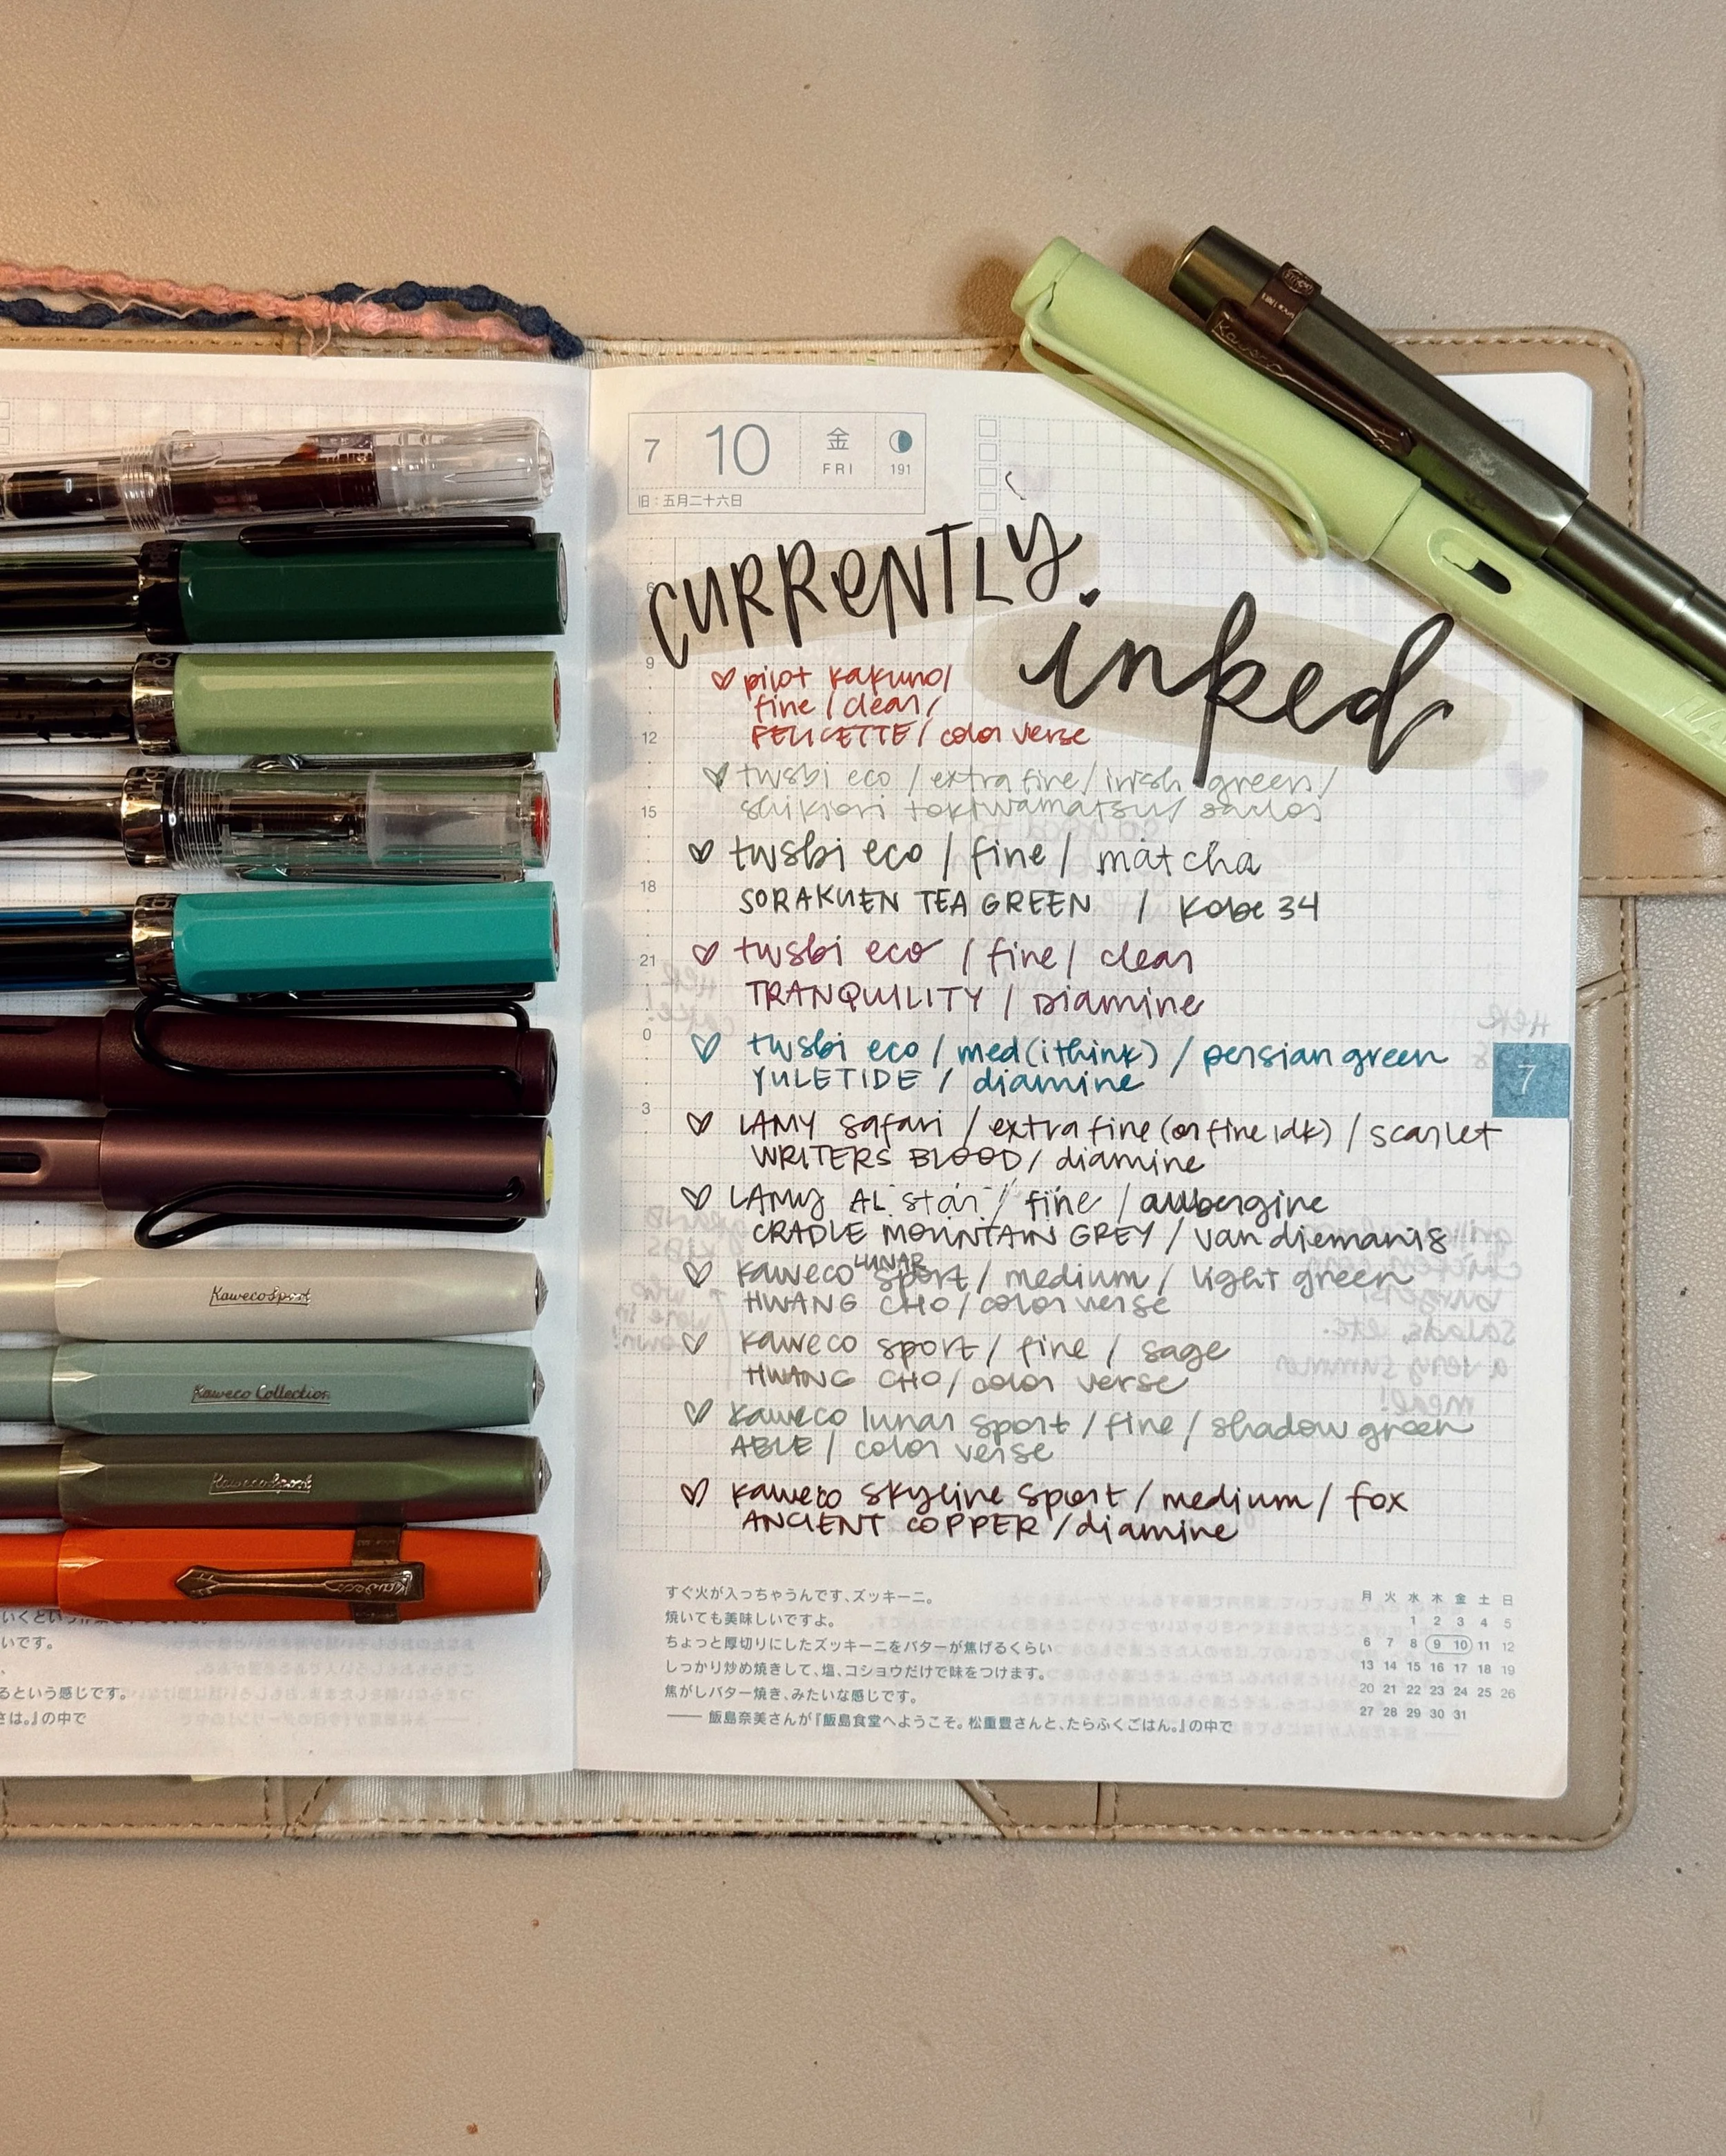 7
10
金
FRI
191
旧：五月二十六日
CURRENTLY
inked
6
9
12
15
18
21
0
3
pilot kakuno/
fine / clear /
FELICETTE / color verse
twsbi eco / extra fine / irish green /
shikiori tokiwamatsu / sailor
twsbi eco / fine / matcha
SORAKUEN TEA GREEN / Kobe 34
twsbi eco / fine / clear
TRANQUILITY / Diamine
twsbi eco / med (i think) / persian green
YULETIDE / diamine
LAMY safari / extra fine (or fine idk) / scarlet
WRITERS BLOOD / diamine
LAMY AL star / fine / aubergine
CRADLE MOUNTAIN GREY / van diemanis
kaweco LUNAR sport / medium / light green
HWANG CHO / color verse
kaweco sport / fine / sage
HWANG CHO / color verse
kaweco lunar sport / fine / shadow green
ABLE / color verse
kaweco skyline sport / medium / fox
ANCIENT COPPER / diamine
7
すぐ火が入っちゃうんです、ズッキーニ。
焼いても美味しいですよ。
ちょっと厚切りにしたズッキーニをバターが焦げるくらい
しっかり炒め焼きして、塩、コショウだけで味をつけます。
焦がしバター焼き、みたいな感じです。
── 飯島奈美さんが『飯島食堂へようこそ。松重豊さんと、たらふくごはん。』の中で
月 火 水 木 金 土 日
1 2 3 4 5
6 7 8 9 10 11 12
13 14 15 16 17 18 19
20 21 22 23 24 25 26
27 28 29 30 31
KawecoSport
Kaweco Collection
KawecoSport
Kaweco
Kaweco
LAMY
いです。
るという感じです。
さは。』の中で